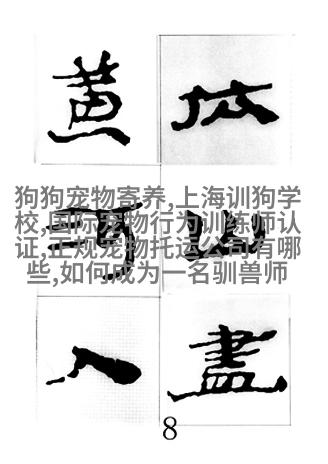 依山盡
黄河入
狗狗宠物寄养,上海训狗学
校,国际宠物行为训练师认
证,正规宠物托运公司有哪
些,如何成为一名驯兽师
8